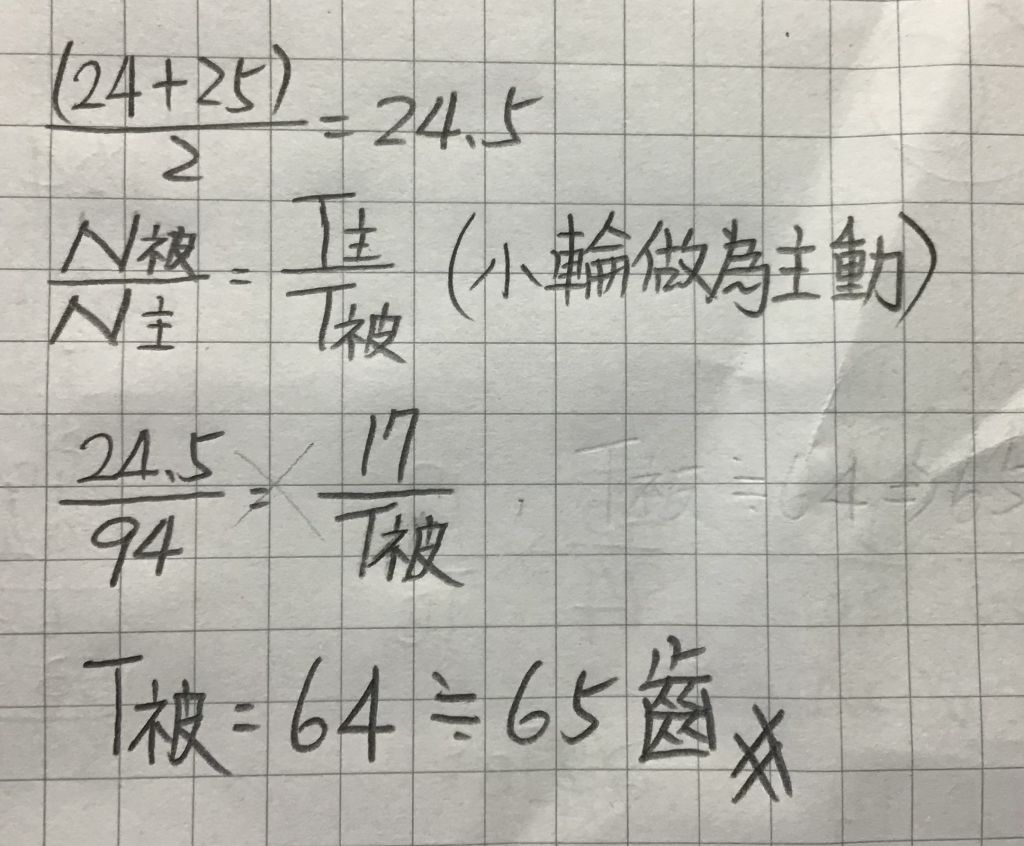 (24+25)/2 = 24.5
N被/N主 = T主/T被 (小輪做為主動)
24.5/94 = 17/T被
T被 = 64 ≒ 65齒